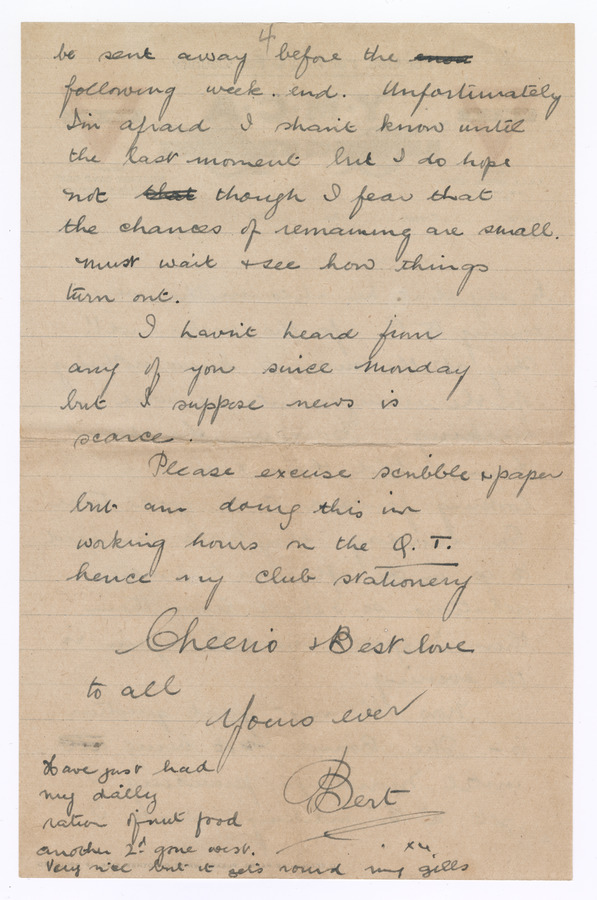 4
be sent away before the
following week. end. Unfortunately
I'm afraid I shan't know until
the last moment but I do hope
not that though I fear that
the chances of remaining are small.
Must wait & see how things
turn out.
I havn't heard from
any of you since Monday
but I suppose news is
scarce.
Please excuse scribble & paper
but am doing this in
working hours on the Q. T.
hence my club stationery
Cheerio & Best love
to all
Yours ever
Bert
Have just had
my daily
ration of nut food
another 2d gone west.
Very nice but it gets round my gills